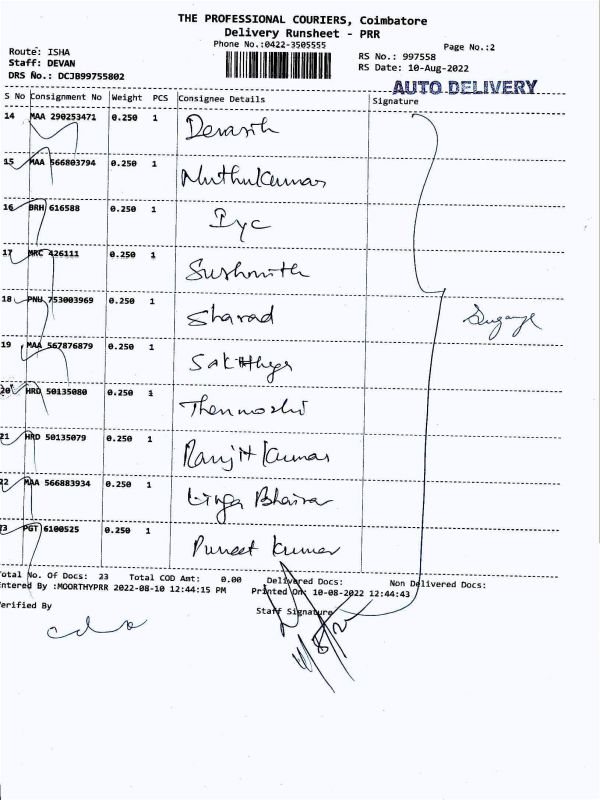 THE PROFESSIONAL COURIERS, Coimbatore
Delivery Runsheet - PRR
Phone No.:0422-3505555
Page No.:2
Route: ISHA
Staff: DEVAN
DRS No.: DCJB99755802
RS No.: 997558
RS Date: 10-Aug-2022
AUTO DELIVERY
S No Consignment No Weight PCS Consignee Details Signature
14 MAA 290253471 0.250 1
15 MAA 566803794 0.250 1 Muthukumar
16 BRH 616588 0.250 1 Iyc
17 MRC 426111 0.250 1 Sushmith
18 PNU 753003969 0.250 1 Sharad
19 MAA 567876879 0.250 1
20 HRD 50135080 0.250 1 Thenmozhi
21 HRD 50135079 0.250 1 Ranjit Kumar
22 MAA 566883934 0.250 1 Linga Bhairavi
23 PGT 6100525 0.250 1 Puneet Kumar
Total No. Of Docs: 23 Total COD Amt: 0.00 Delivered Docs: Non Delivered Docs:
Entered By :MOORTHYPRR 2022-08-10 12:44:15 PM Printed On: 10-08-2022 12:44:43
Verified By Staff Signature